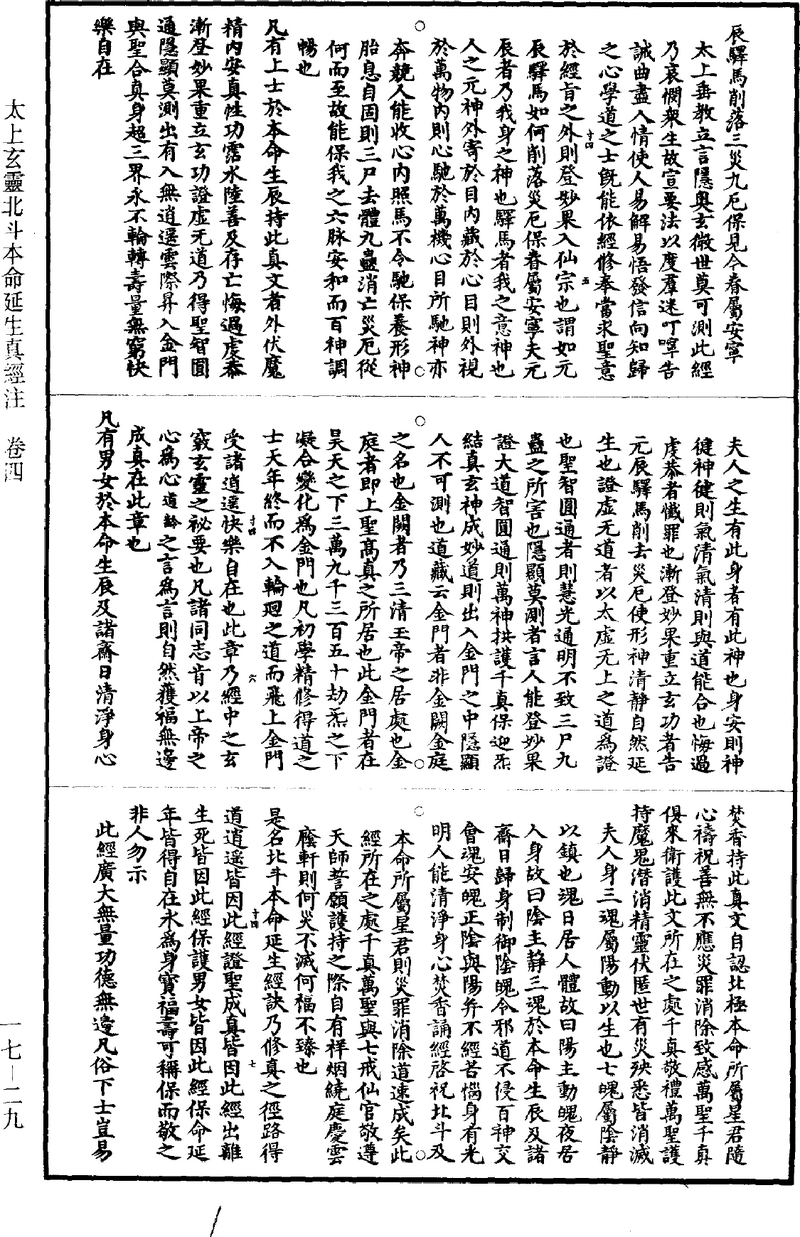 辰驛馬削落三災九厄保見今眷屬安寧
太上垂教立言隱奧玄微世莫可測此經
乃哀憫衆生故宣要法以度羣迷叮嚀告
誡曲盡人情使人易解易悟發信向知歸
之心學道之士旣能依經修奉當求聖意
於經旨之外則登妙果入仙宗也謂如元
辰驛馬如何削落災厄保眷屬安寧夫元
辰者乃我身之神也驛馬者我之意神也
人之元神外寄於目內藏於心目則外視
於萬物內則心馳於萬機心目所馳神亦
奔競人能收心內照馬不令馳保養形神
胎息自固則三尸去體九蟲消亡災厄從
何而至故能保我之六脉安和而百神調
暢也
凡有上士於本命生辰持此真文者外伏魔
精內安真性功霑水陸善及存亡悔過虔恭
漸登妙果重立玄功證虛无道乃得聖智圓
通隱顯莫測出有入無逍遥雲際昇入金門
與聖合真身超三界永不輪轉壽量無窮快
樂自在
夫人之生有此身者有此神也身安則神
健神健則氣清氣清則與道能合也悔過
虔恭者懺罪也漸登妙果重立玄功者告
元辰驛馬削去災厄使形神清靜自然延
生也證虛无道者以太虛无上之道爲證
也聖智圓通者則慧光通明不致三尸九
蟲之所害也隱顯莫測者言人能登妙果
證大道智圓通則萬神拱護千真保迎炁
結真玄神成妙道則出入金門之中隱顯
人不可測也道藏云金門者非金闕金庭
之名也金闕者乃三清玉帝之居處也金
庭者即上聖髙真之所居也此金門者在
昊天之下三萬九千三百五十劫炁之下
凝合變化爲金門也凡初學精修得道之
士天年終而不入輪廻之道而飛上金門
受諸逍遥快樂自在也此章乃經中之玄
竅玄靈之祕要也凡諸同志肯以上帝之
心爲心道齡之言爲言則自然獲福無邊
成真在此章也
凡有男女於本命生辰及諸齋日清淨身心
焚香持此真文自認北極本命所屬星君隨
心禱祝善無不應災罪消除致感萬聖千真
俱來衛護此文所在之處千真敬禮萬聖護
持魔鬼潛消精靈伏匿世有災殃悉皆消滅
夫人身三魂屬陽動以生也七魄屬陰靜
以鎮也魂日居人體故曰陽主動魄夜居
人身故曰陰主静三魂於本命生辰及諸
齋日歸身制御陰魄令邪道不侵百神交
會魂安魄正陰與陽并不經苦惱身有光
明人能清淨身心焚香誦經啓祝北斗及
本命所屬星君則災罪消除道速成矣此
經所在之處千真萬聖與七戒仙官敬遵
天師誓願護持之際自有祥烟繞庭慶雲
廕軒則何災不滅何福不臻也
是名北斗本命延生經訣乃修真之徑路得
道逍遥皆因此經證聖成真皆因此經出離
生死皆因此經保護男女皆因此經保命延
年皆得自在永爲身寳福壽可稱保而敬之
非人勿示
此經廣大無量功德無邊凡俗下士豈易
十四
五
十四
六
十四
七
太上玄靈北斗本命延生真經注 卷四
一七－二九